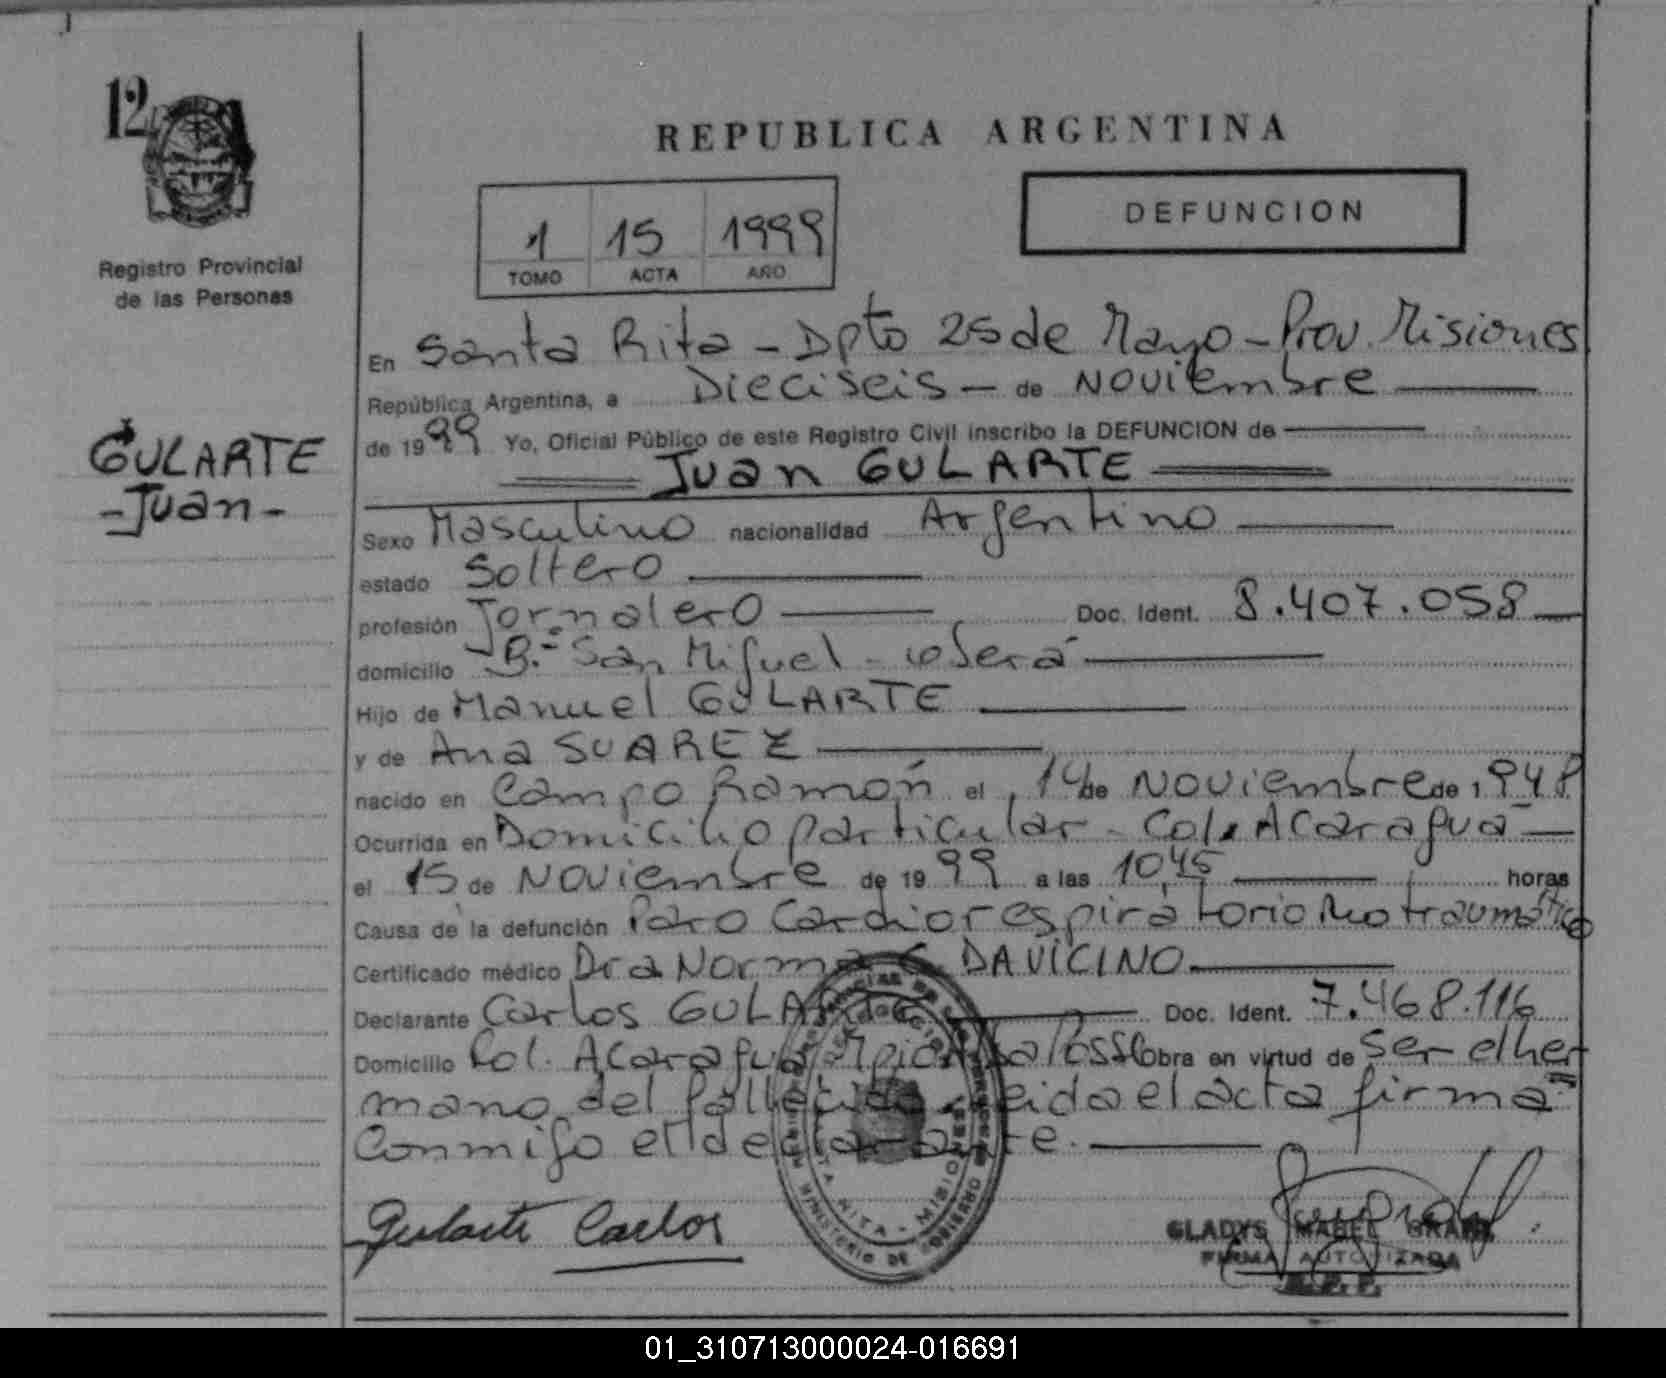 12
REPUBLICA ARGENTINA
Registro Provincial
de las Personas
1 15 1999
TOMO ACTA AÑO
DEFUNCION
En Santa Rita - Dpto 25 de Mayo - Prov. Misiones
República Argentina, a Dieciseis - de Noviembre
de 1999 Yo, Oficial Público de este Registro Civil inscribo la DEFUNCION de
Juan GULARTE
GULARTE
- Juan -
Sexo Masculino nacionalidad Argentino
estado Soltero
profesión Jornalero Doc. Ident. 8.407.058
domicilio B.- San Miguel - Oberá
Hijo de Manuel GULARTE
y de Ana SUAREZ
nacido en Campo Ramón el 14 de Noviembre de 1948
Ocurrida en Domicilio particular - Col. Acaragua
el 15 de Noviembre de 1999 a las 10,45 horas
Causa de la defunción Paro Cardiorespiratorio No traumático
Certificado médico Dra Norma DAVICINO
Declarante Carlos GULARTE Doc. Ident. 7.468.116
Domicilio Col. Acaragua Obra en virtud de Ser el her
mano del fallecido Leida el acta firma
Conmigo el declarante.
Gularte Carlos
MINISTERIO DE GOBIERNO
SANTA RITA - MISIONES
GLADYS MABEL
FIRMA AUTORIZADA
01_310713000024-016691